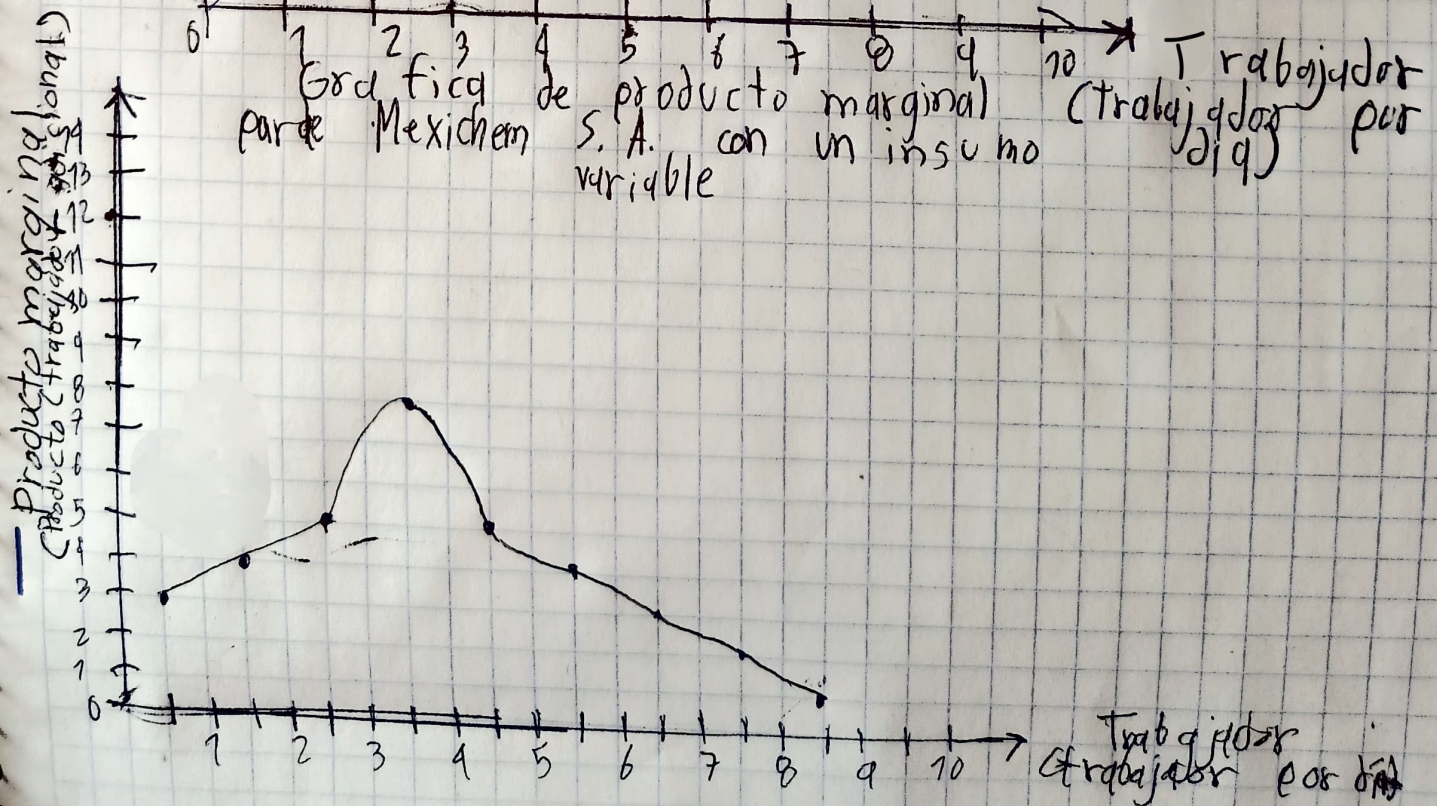 0 1 2 3 4 5 6 7 8 9 10 Trabajador
(trabajador por
día)
Grafica de producto marginal
parde Mexichem S.A. con un insumo
variable
Producto marginal
(Producto trabajador adicional)
14
13
12
11
10
9
8
7
6
5
4
3
2
1
0
1 2 3 4 5 6 7 8 9 10
Trabajador
(trabajador por día)